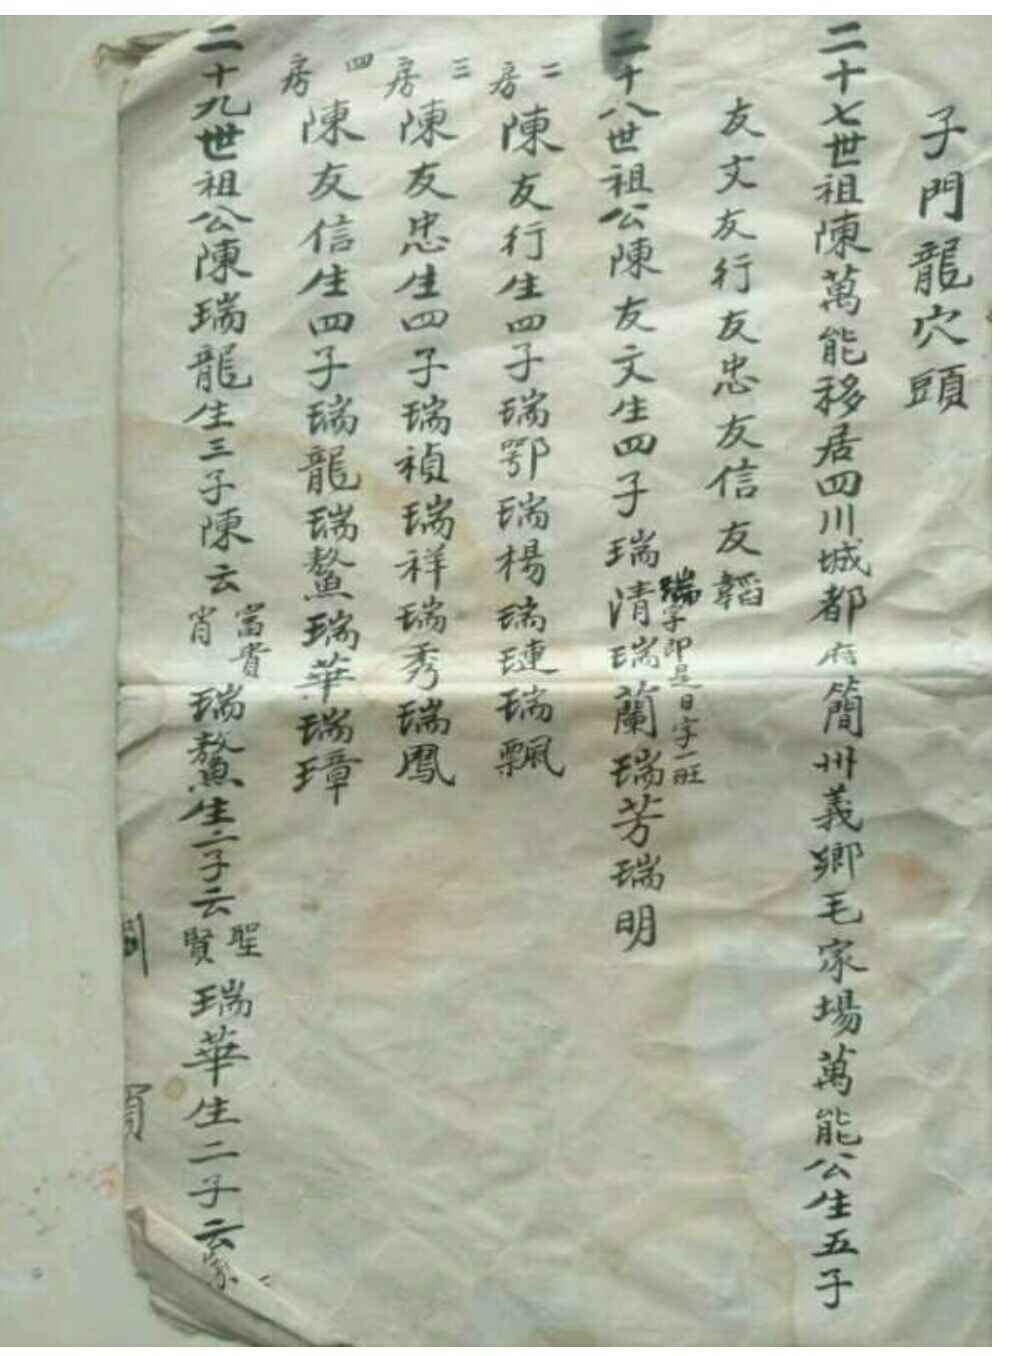 子門龍穴頭
二十七世祖陳萬能移居四川城都府簡州義鄉毛家場萬能公生五子
友文友行友忠友信友韜
瑞字即是日字一旺
二十八世祖公陳友文生四子瑞清瑞蘭瑞芳瑞明
二房陳友行生四子瑞鄂瑞楊瑞璉瑞飄
三房陳友忠生四子瑞禎瑞祥瑞秀瑞鳳
四房陳友信生四子瑞龍瑞鰲瑞華瑞璋
二十九世祖公陳瑞龍生三子陳云富貴肖瑞鰲生二子云聖賢瑞華生二子云